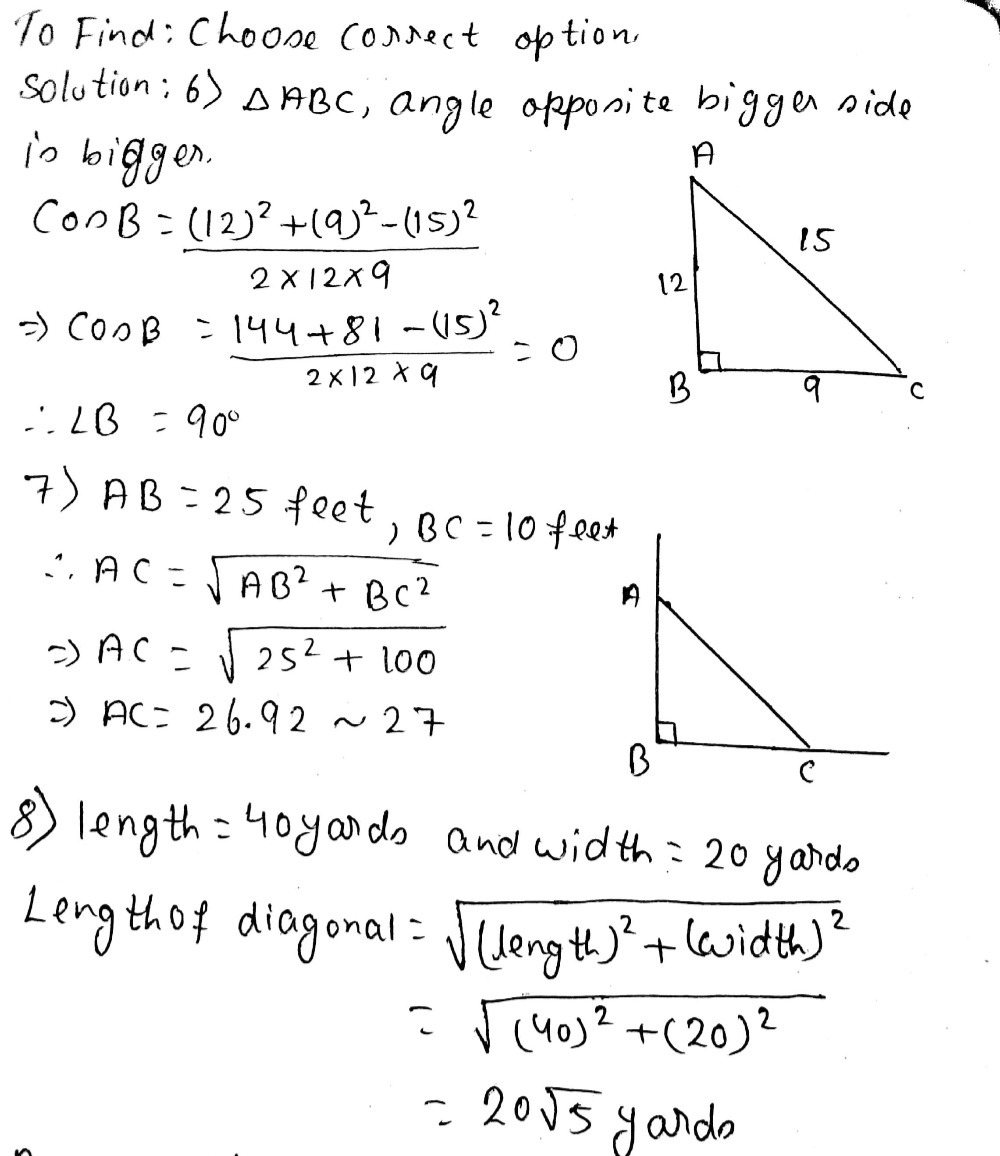 To Find: Choose correct option.
Solution: 6) △ABC, angle opposite bigger side
is bigger.
CosB = (12)² + (9)² - (15)² / 2 × 12 × 9
⇒ CosB = 144 + 81 - (15)² / 2 × 12 × 9 = 0
∴ ∠B = 90°
A
12
15
B
9
C
7) AB = 25 feet, BC = 10 feet
∴ AC = √AB² + BC²
⇒ AC = √25² + 100
⇒ AC = 26.92 ~ 27
A
B
C
8) length = 40 yards and width = 20 yards
Length of diagonal = √(length)² + (width)²
= √(40)² + (20)²
= 20√5 yards